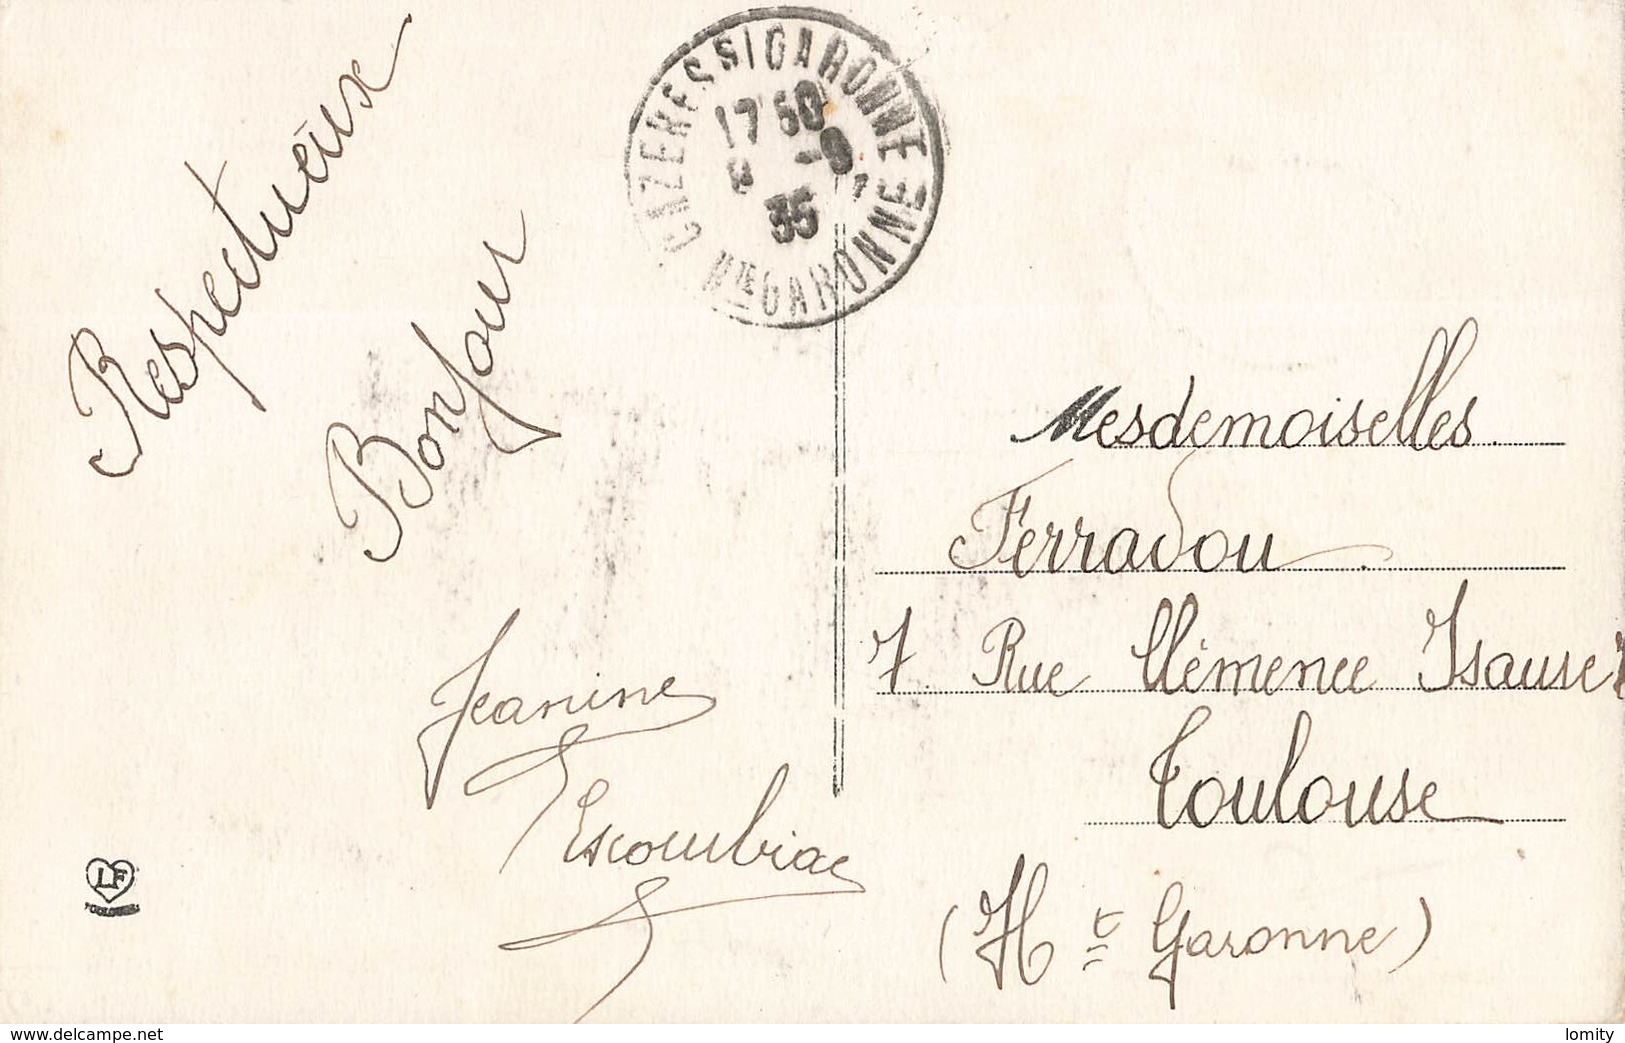 CAZERES S/GARONNE
17 50
-9
35
Hte GARONNE
Respectueux
Bonjour
Jeanine
Escoumbiac
Mesdemoiselles
Ferradou
7 Rue Clémence Isaure
Toulouse
(Ht Garonne)
LF
TOULOUSE
www.delcampe.net
lomity